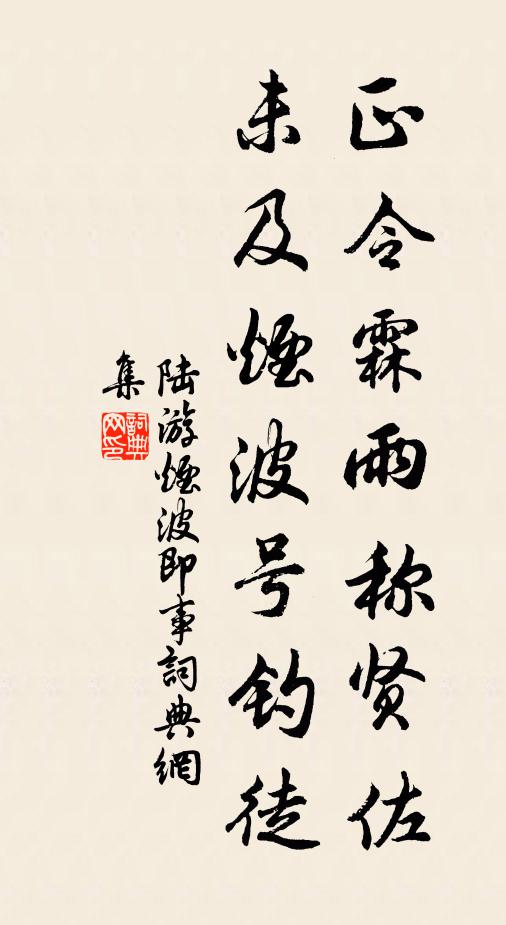 正令霖雨称贤佐
未及烟波号钓徒
陆游烟波即事詞典網
集
詞典
网印